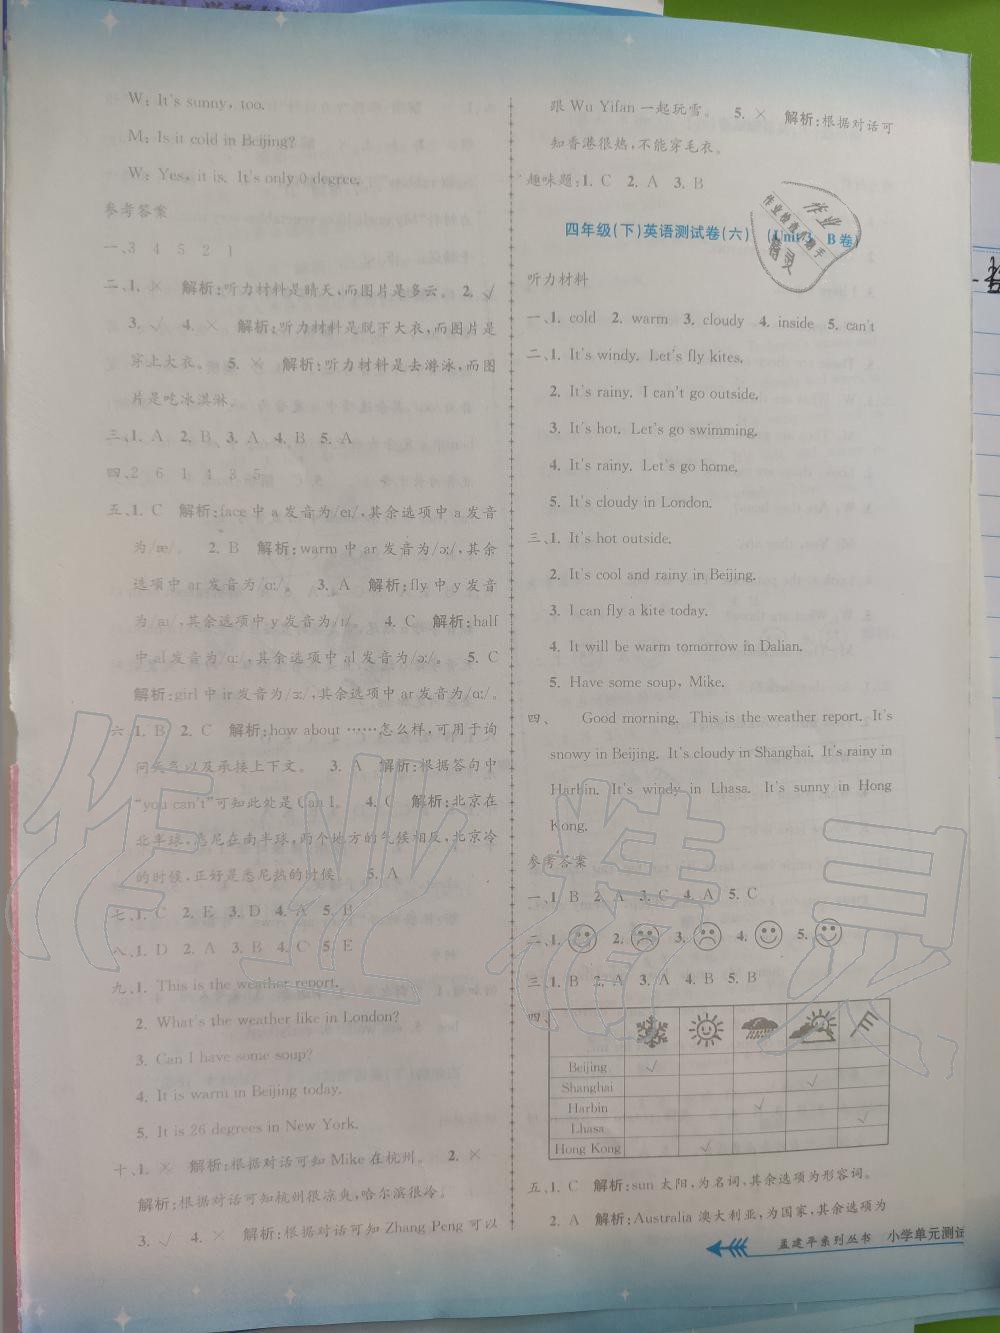 W: It's sunny, too.
M: Is it cold in Beijing?
W: Yes, it is. It's only 0 degree.
参考答案
一、3 4 5 2 1
二、1. × 解析:听力材料是晴天,而图片是多云。 2. √
3. √ 4. × 解析:听力材料是脱下大衣,而图片是
穿上大衣。 5. × 解析:听力材料是去游泳,而图
片是吃冰淇淋。
三、1. A 2. B 3. A 4. B 5. A
四、2 6 1 4 3 5
五、1. C 解析:face 中 a 发音为/eɪ/,其余选项中 a 发音
为/æ/。 2. B 解析:warm 中 ar 发音为/ɔː/,其余
选项中 ar 发音为/ɑː/。 3. A 解析:fly 中 y 发音
为/aɪ/,其余选项中 y 发音为/ɪ/。 4. C 解析:half
中 al 发音为/ɑː/,其余选项中 al 发音为/ɔː/。 5. C
解析:girl 中 ir 发音为/ɜː/,其余选项中 ar 发音为/ɑː/。
六、1. B 2. C 解析:how about ……怎么样,可用于询
问天气以及承接上下文。 3. A 解析:根据答句中
“you can't”可知此处是 Can I。 4. C 解析:北京在
北半球,悉尼在南半球,两个地方的气候相反,北京冷
的时候,正好是悉尼热的时候。 5. A
七、1. C 2. E 3. D 4. A 5. B
八、1. D 2. A 3. B 4. C 5. E
九、1. This is the weather report.
2. What's the weather like in London?
3. Can I have some soup?
4. It is warm in Beijing today.
5. It is 26 degrees in New York.
十、1. × 解析:根据对话可知 Mike 在杭州。 2. ×
解析:根据对话可知杭州很凉爽,哈尔滨很冷。
3. √ 4. × 解析:根据对话可知 Zhang Peng 可以
跟 Wu Yifan 一起玩雪。 5. × 解析:根据对话可
知香港很热,不能穿毛衣。
趣味题:1. C 2. A 3. B
四年级(下)英语测试卷(六) (Unit 3 B卷)
听力材料
一、1. cold 2. warm 3. cloudy 4. inside 5. can't
二、1. It's windy. Let's fly kites.
2. It's rainy. I can't go outside.
3. It's hot. Let's go swimming.
4. It's rainy. Let's go home.
5. It's cloudy in London.
三、1. It's hot outside.
2. It's cool and rainy in Beijing.
3. I can fly a kite today.
4. It will be warm tomorrow in Dalian.
5. Have some soup, Mike.
四、 Good morning. This is the weather report. It's
snowy in Beijing. It's cloudy in Shanghai. It's rainy in
Harbin. It's windy in Lhasa. It's sunny in Hong
Kong.
参考答案
一、1. B 2. A 3. C 4. A 5. C
二、1. 2. 3. 4. 5.
三、1. B 2. A 3. A 4. B 5. B
四、
Beijing √
Shanghai √
Harbin √
Lhasa √
Hong Kong √
五、1. C 解析:sun 太阳,为名词,其余选项为形容词。
2. A 解析:Australia 澳大利亚,为国家,其余选项为
孟建平系列丛书 小学单元测试